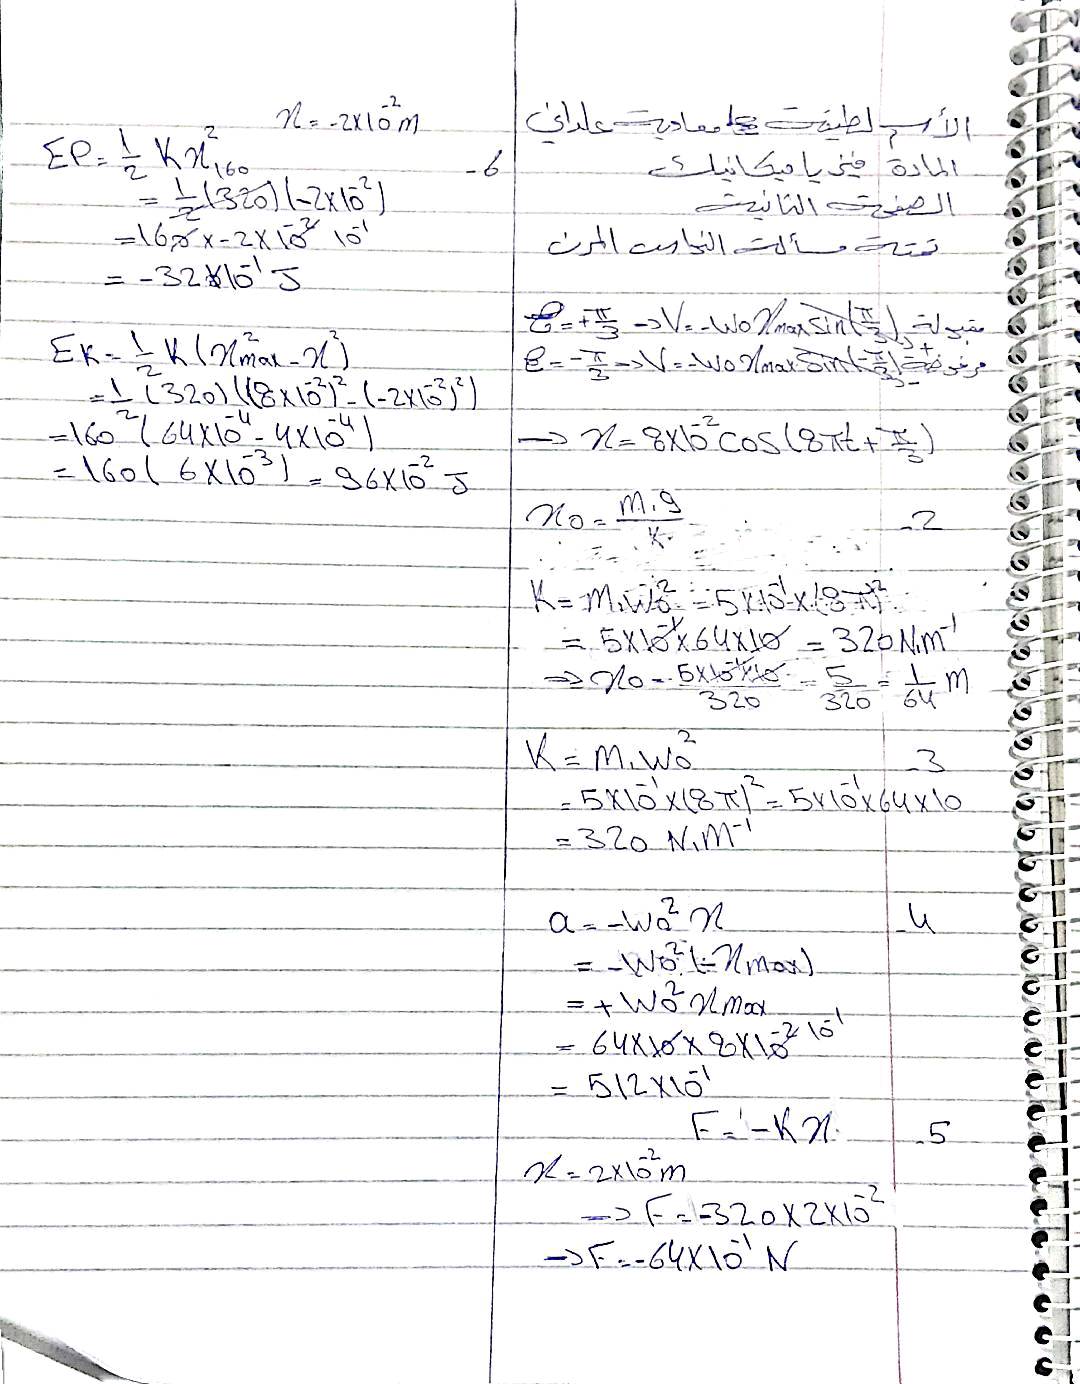 الأسم لطيفة معادية علداني
المادة فيزيا ميكانيك
الصفحة الثانية
تتمة مسألة النواس المرن
φ = +π/3 → V = -W0 Xmax sin(π/3) مقبولة
φ = -π/3 → V = -W0 Xmax sin(-π/3) مرفوضة
→ x = 8×10^-2 cos(8πt + π/3)
2- x0 = m.g/K
K = m.W0^2 = 5×10^-1 × (8π)^2
= 5×10^-1 × 64×10 = 320 N.m^-1
⇒ x0 = 5×10^-1×10/320 = 5/320 = 1/64 m
3- K = m.W0^2
= 5×10^-1 × (8π)^2 = 5×10^-1×64×10
= 320 N.m^-1
4- a = -W0^2 x
= -W0^2 (-xmax)
= +W0^2 xmax
= 64×10 × 8×10^-2 10^-1
= 512×10^-1
5- F = -Kx
x = 2×10^-2 m
→ F = -320×2×10^-2
→ F = -64×10^-1 N
x = -2×10^-2 m
6- EP = 1/2 K x^2
160
= 1/2 (320)(-2×10^-2)
= 160 × -2×10^-2 10^-1
= -32×10^-1 J
EK = 1/2 K (x^2max - x^2)
= 1/2 (320)((8×10^-2)^2 - (-2×10^-2)^2)
= 160 (64×10^-4 - 4×10^-4)
= 160 (6×10^-3) = 96×10^-2 J